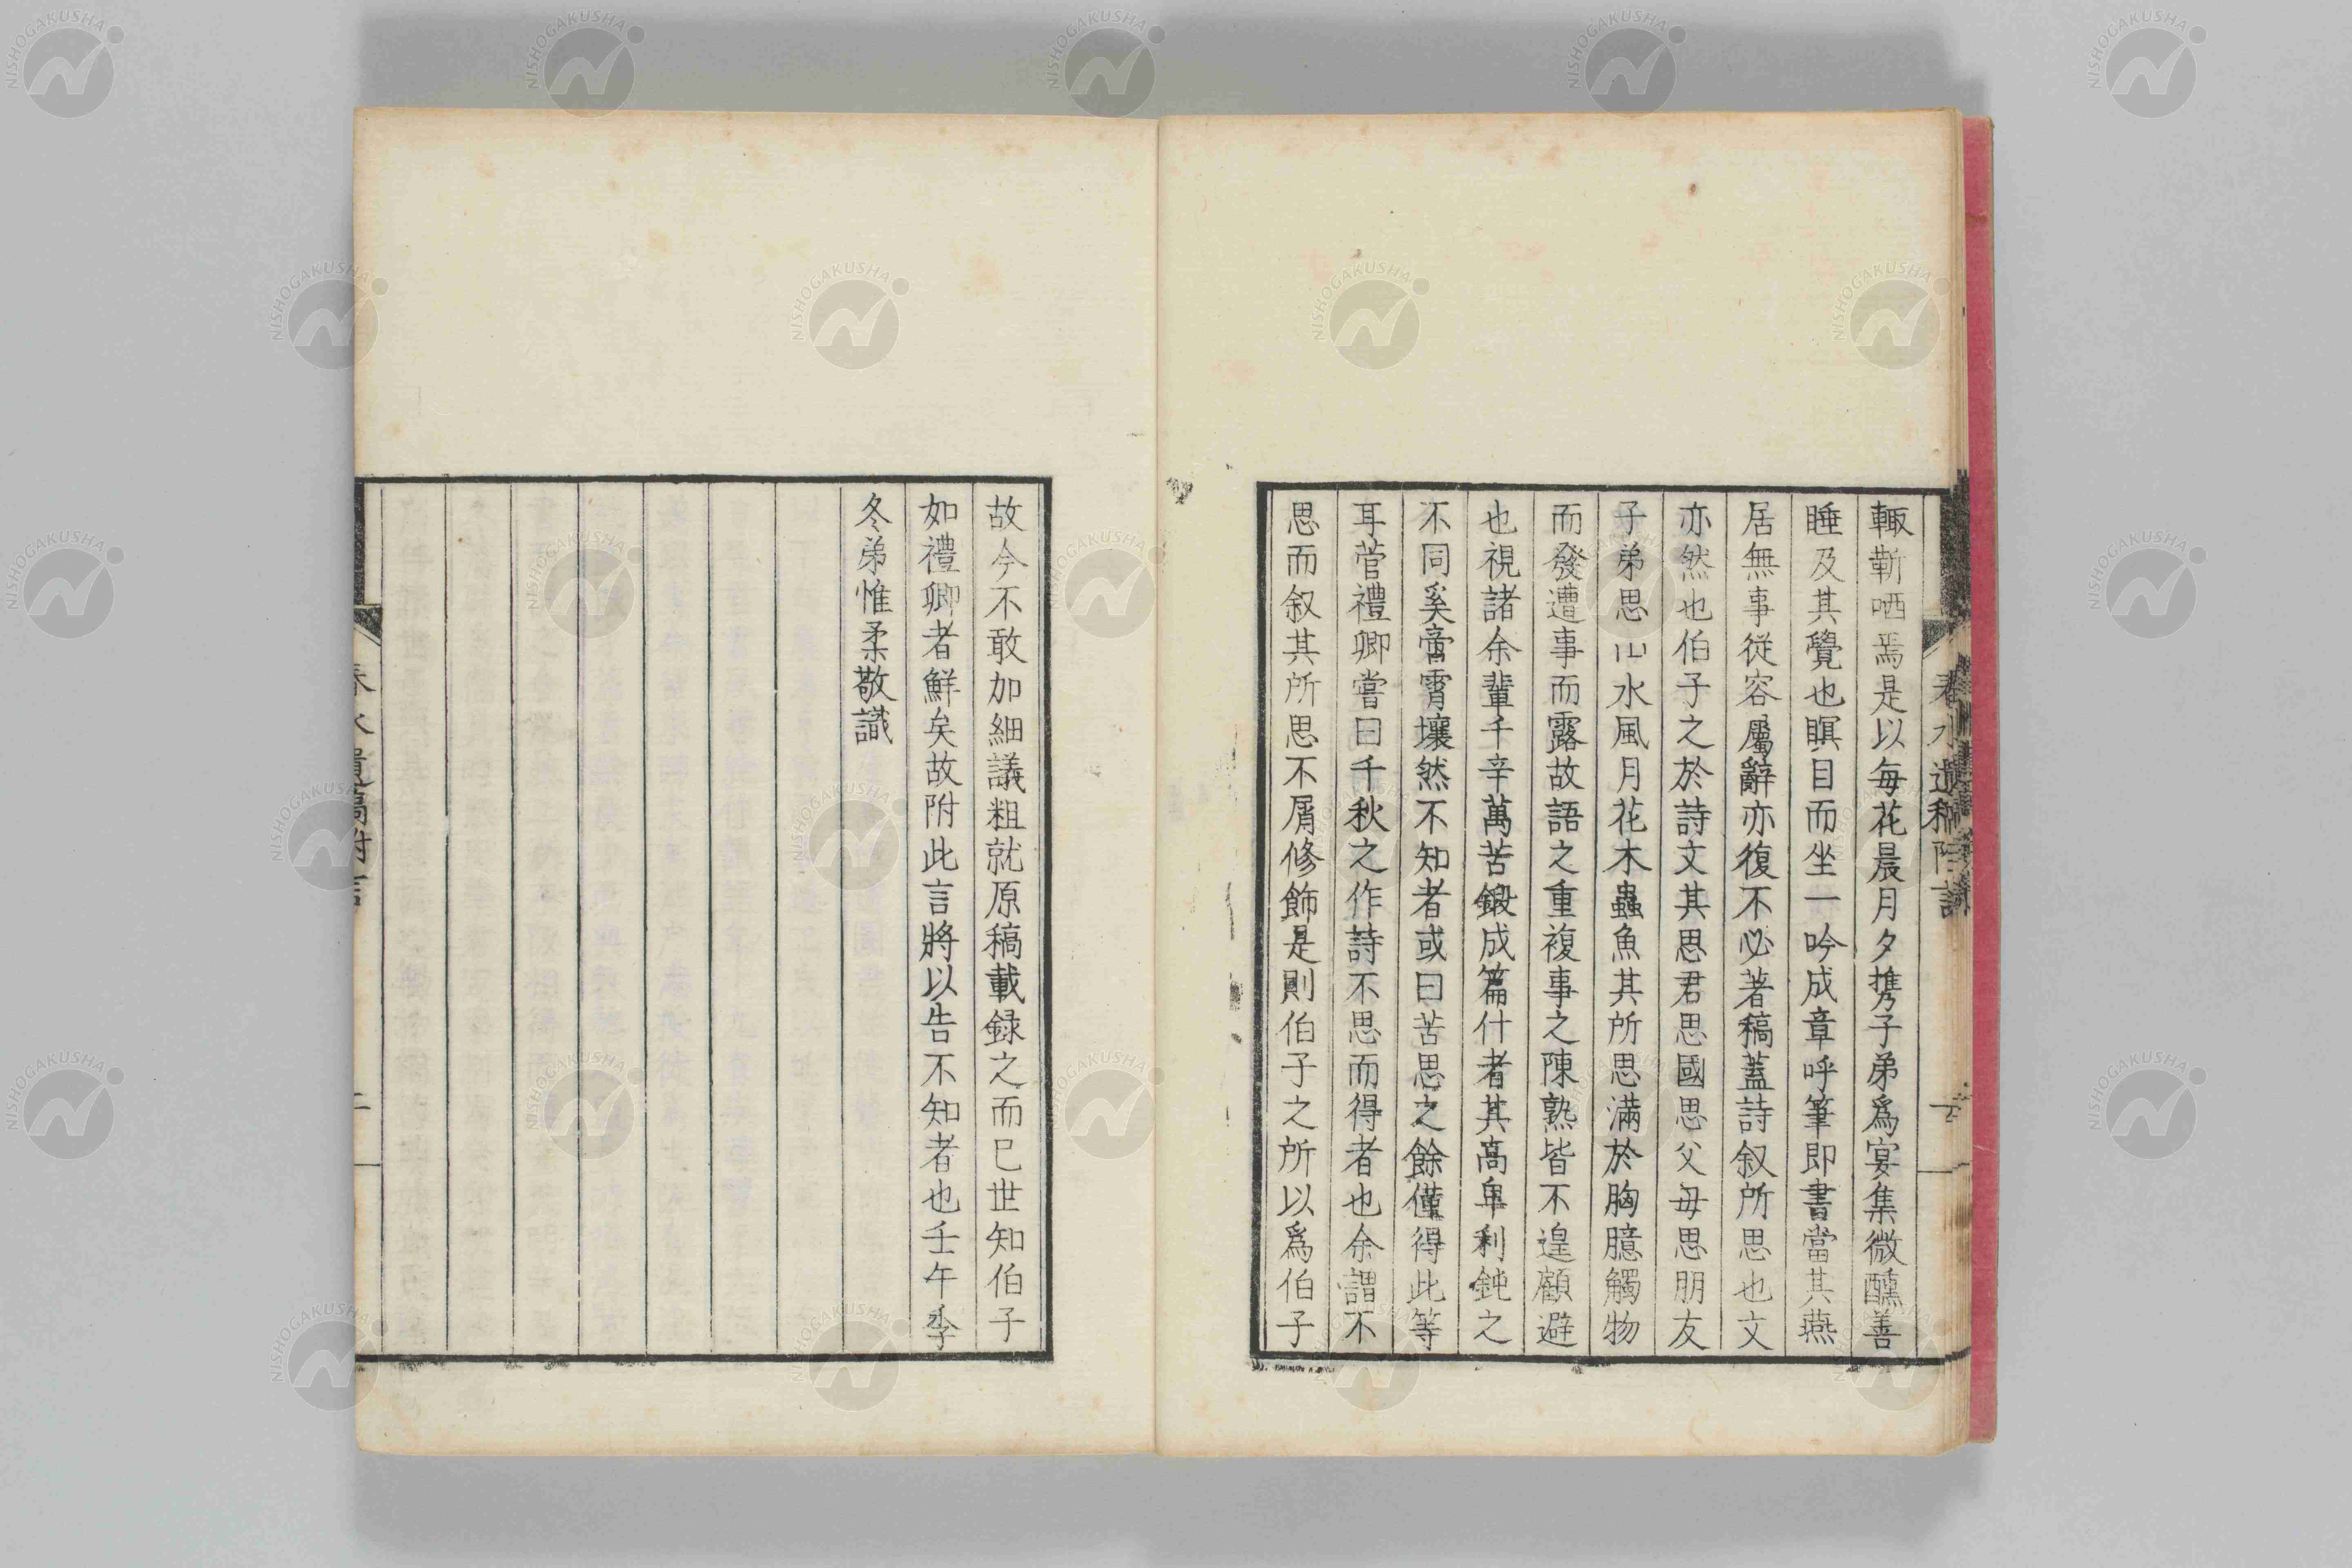 輙蘄哂焉是以每花晨月夕携子弟爲宴集微醺善
睡及其覺也瞑目而坐一吟成章呼筆即書當其燕
居無事從容屬辭亦復不必著稿蓋詩叙所思也文
亦然也伯子之於詩文其思君思國思父毋思朋友
子弟思山水風月花木蟲魚其所思滿於胸臆觸物
而發遭事而露故語之重複事之陳熟皆不遑顧避
也視諸余輩千辛萬苦鍛成篇什者其高卑利鈍之
不同奚啻霄壤然不知者或曰苦思之餘僅得此等
耳菅禮卿嘗曰千秋之作詩不思而得者也余謂不
思而叙其所思不屑修飾是則伯子之所以爲伯子
故今不敢加細議粗就原稿載録之而已世知伯子
如禮卿者鮮矣故附此言將以告不知者也壬午季
冬弟惟柔敬識
春水遺稿附言
NISHOGAKUSHA